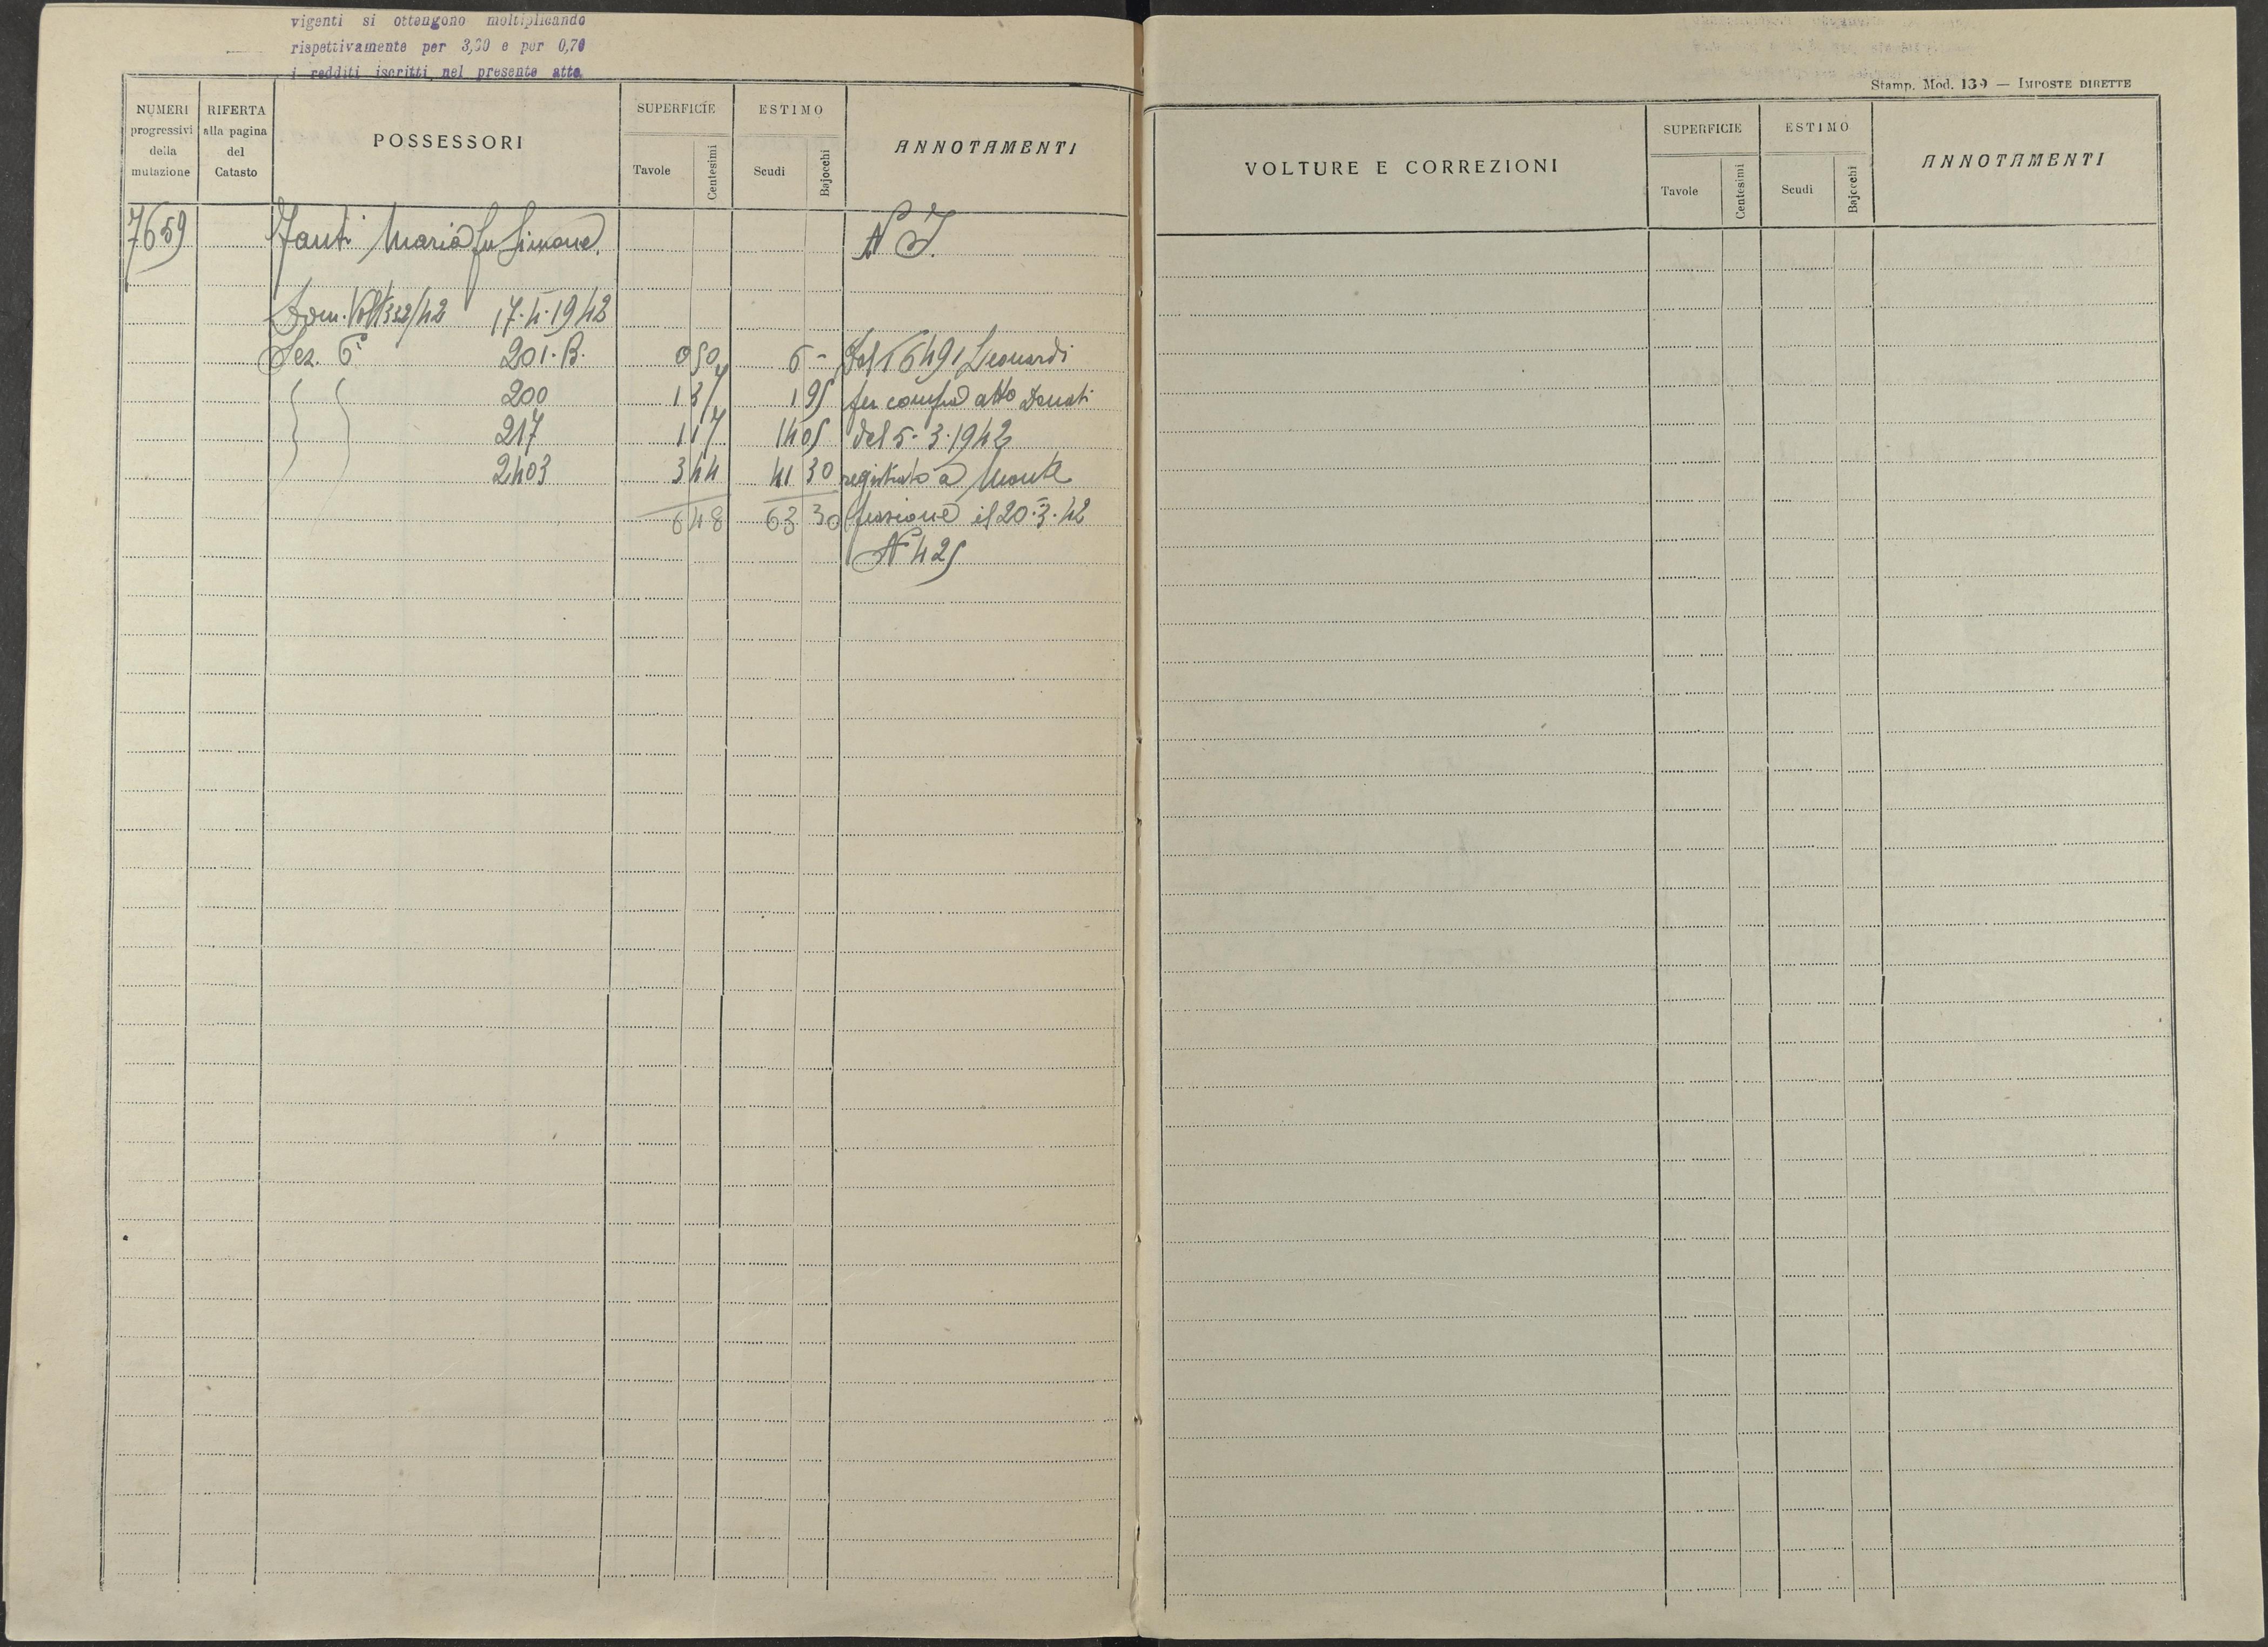 vigenti si ottengono moltiplicando
rispettivamente per 3,20 e per 0,70
i redditi iscritti nel presente atto
NUMERI progressivi della mutazione
RIFERTA alla pagina del Catasto
POSSESSORI
SUPERFICIE
Tavole
Centesimi
ESTIMO
Scudi
Bajocchi
ANNOTAMENTI
7659 Maria fu Simone N T.
Dom. Volt 332/42 17.4.1942
Sez. 6ª 201.B. 0 50 6 - Dal 6491 Leonardi
200 1 37 1 95 per compra atto Donati
217 1 17 14 05 del 5.3.1942
2403 3 44 41 30 registrato a Monte
6 48 63 30 il 20.3.42
N 425
Stamp. Mod. 139 — IMPOSTE DIRETTE
VOLTURE E CORREZIONI
SUPERFICIE
Tavole
Centesimi
ESTIMO
Scudi
Bajocchi
ANNOTAMENTI